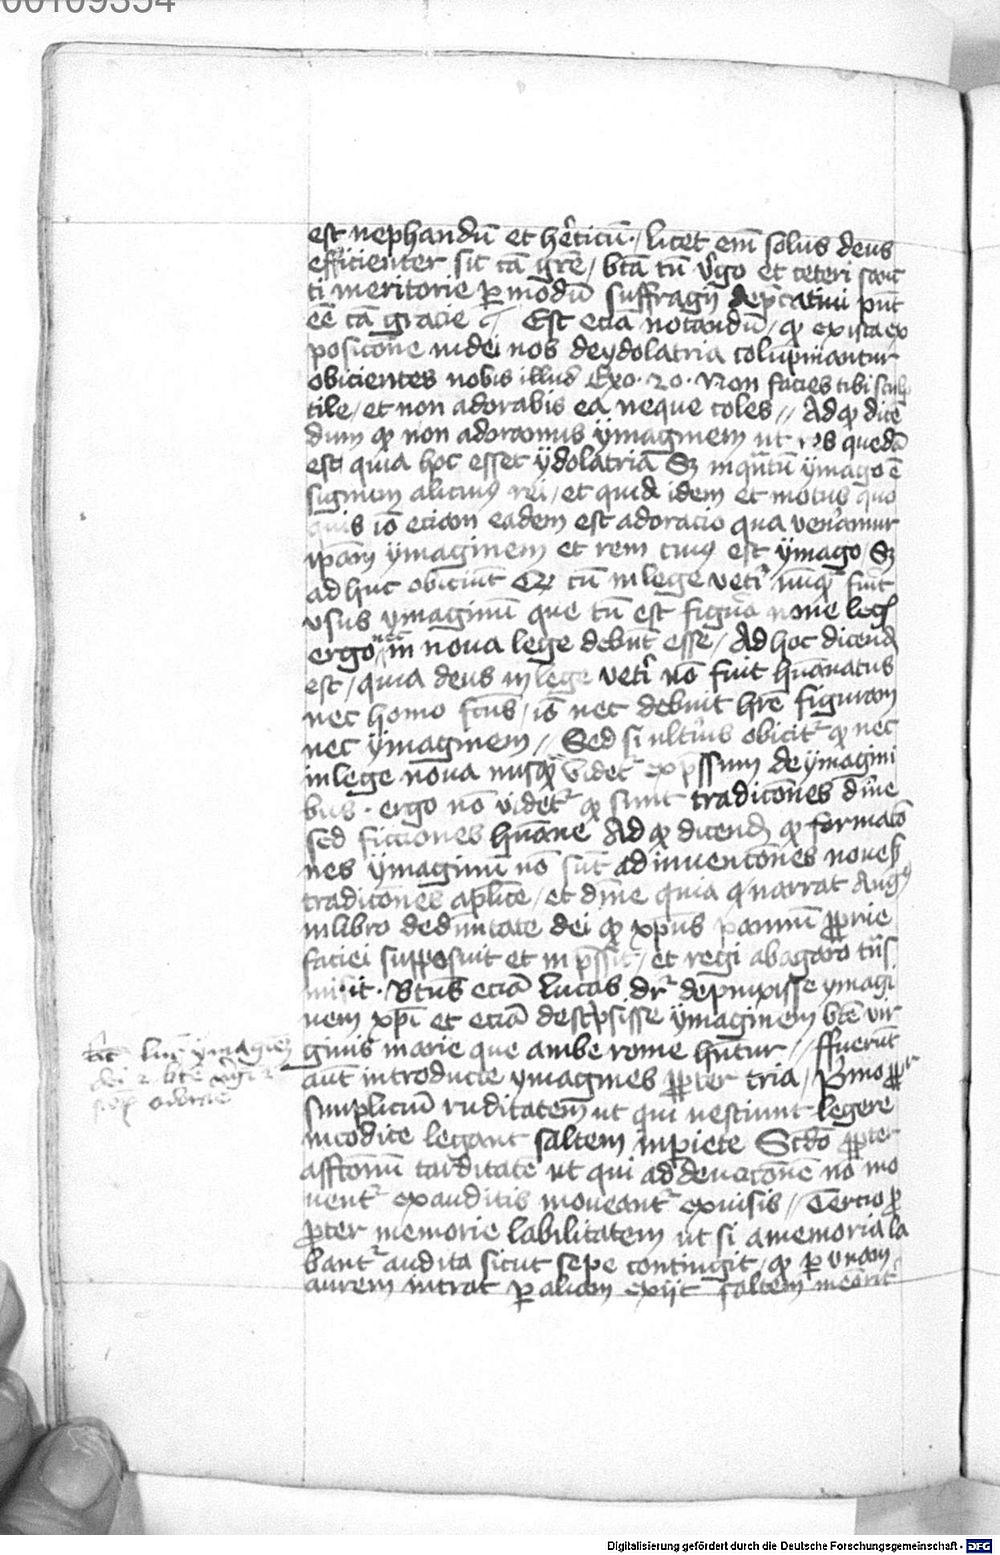 00109354
est nephandū et hēticū / licet em̄ solus deus
efficienter sit cā grē / btā tn̄ v̄go et ceteri sanc
ti meritorie ꝑ modū suffragij dep̄catiui pn̄t
eē cā gracie Est eciā notandū / ꝙ ex ista ex
posicōne iudei nos de ydolatria calūpniantur
obicientes nobis illud Exo· 20· Non facies tibi sculp
tile / et non adorabis ea neque coles // Ad ꝙ dicē
dum ꝙ non adoramus ÿmaginem ut res quedā
est quia hoc esset ÿdolatriā Sꝫ inqn̄tū ÿmago ē
signum alicuiꝰ rei / et quia idem et motus quo
quis iō eciam eadem est adoracio qua ven̄amur
ip̄am ÿmaginem et rem cuiꝰ est ÿmago / Sꝫ
ad huc obiciūt Qꝛ cū in lege vet̄i nūqꝫ fuit
vsus ymaginū que tn̄ est figura noue leḡ
ergo nec in noua lege debn̄t esse / Ad hoc dicend
est / quia deus in lege vet̄i nō fuit hūanatus
nec homo fcūs / iō nec debuit hr̄e figuram
nec ÿmaginem // Sed si ult̄ius obicit̄ ꝙ nec
in lege noua nusqꝫ videt̄ exp̄ssum de ÿmagini
bus · ergo nō videt̄ ꝙ sunt tradicōnes diūne
sed ficciones hūane Ad ꝙ dicend ꝙ formacō
nes ÿmaginū nō sūt adinuencōnes noue s
tradicōnes aplīce / et diūne quia ꝙ narrat Augꝰ
in libro de diūnitate dei ꝙ xp̄us pannū ꝓprie
faciei supposuit et inp̄ssit / et regi abagaro tn̄s
misit · Btūs eciā lucas dr̄ depinxisse ymagi
nem xp̄i et eciā desc̄psisse ÿmaginem btē vir
ginis marie que ambe rome hn̄tur // ffuerūt
aūt introducte ymagines ꝓpter tria / P̄mo ꝓpt̄
simplicium ruditatem ut qui nesciunt legere
in codice legant saltem in p̄iete Scdō ꝓpter
affcōnū tarditatē ut qui ad deuocōnē nō mo
uent̄ ex auditis moueant̄ ex uisis // Tercio ꝓ
pter memorie labilitatem ut si a memoria la
bant̄ audita sicut sepe contingit / ꝙ ꝑ vnam
aurem intrat ꝑ aliam exijt saltem